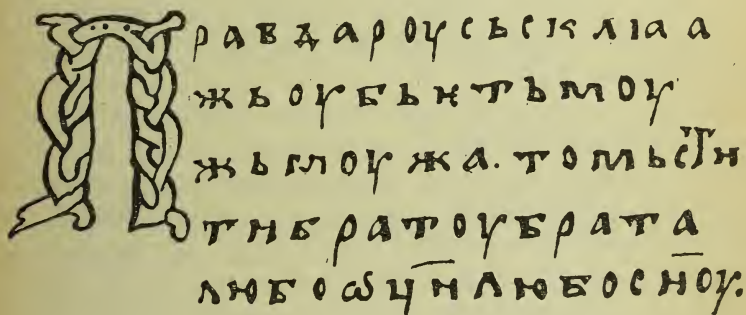 Правдароусьсклıаа
жьоубьнтьмоу
жьмоужа. томьс҃тн
тнбратоубрата
любоѡцн҃любосн҃оу.